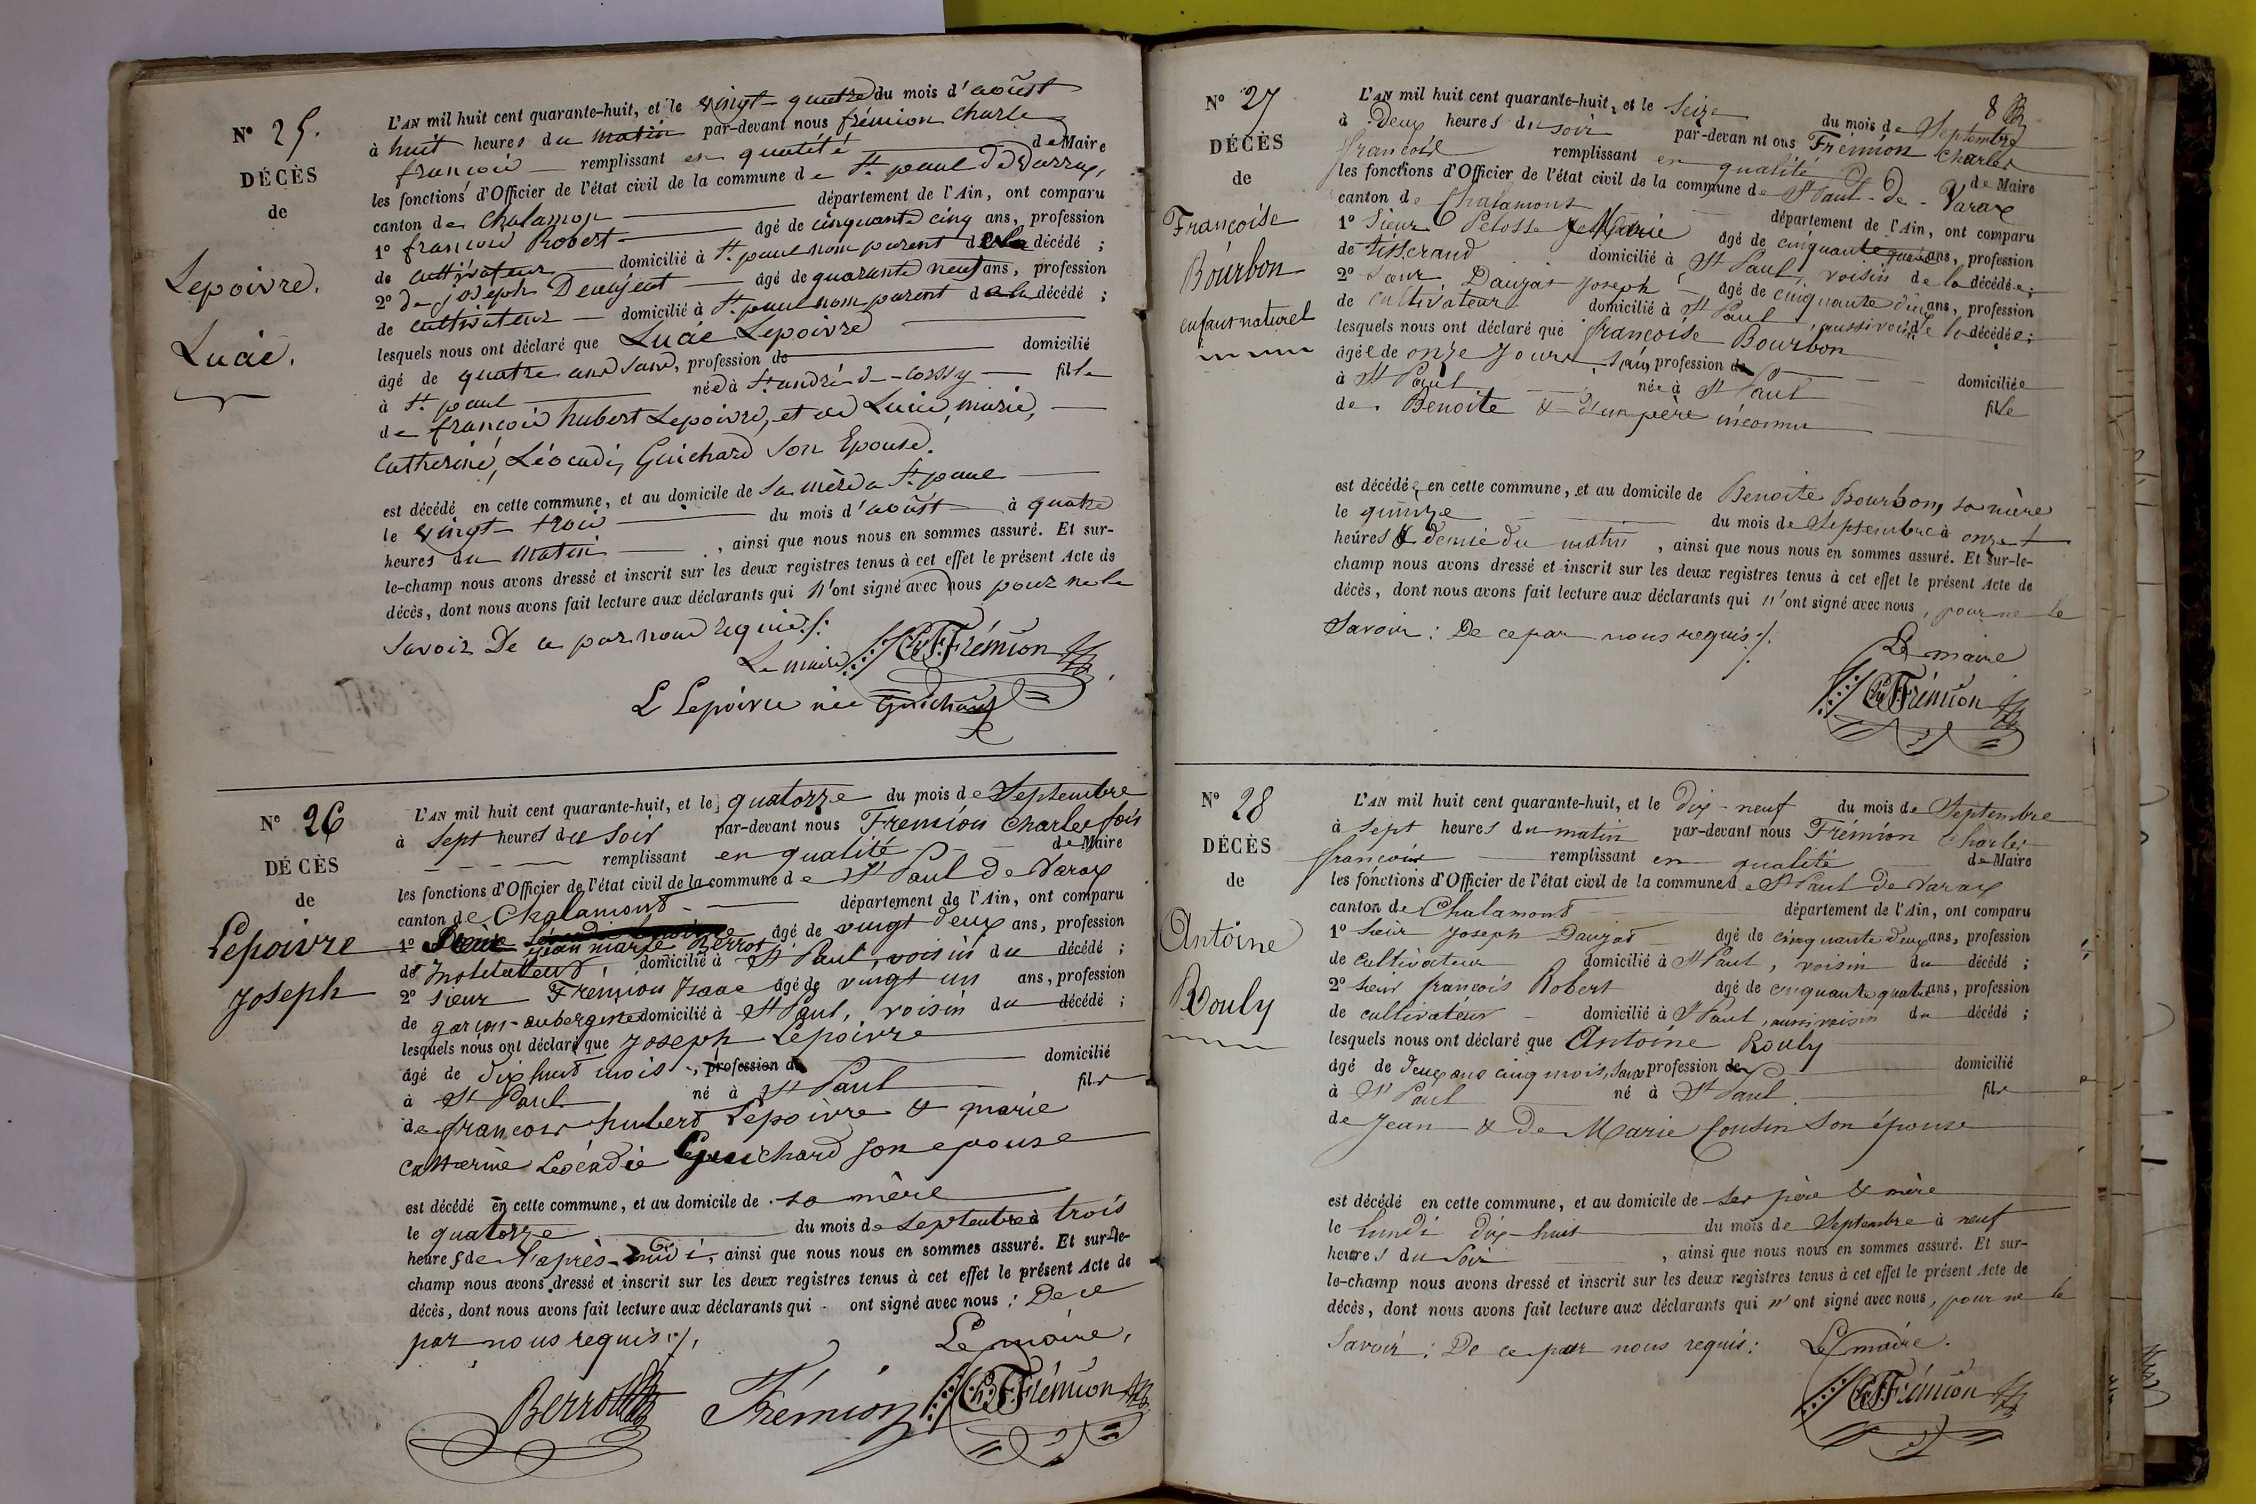 N° 25.
DÉCÈS
de
Lepoivre.
Lucie.
L'AN mil huit cent quarante-huit, et le vingt-quatre du mois d'août
à huit heures du matin par-devant nous frémion Charle
françois remplissant en qualité de Maire
les fonctions d'Officier de l'état civil de la commune de St. paul de Varax,
canton de Chalamon département de l'Ain, ont comparu
1° françois Robert âgé de cinquante cinq ans, profession
de cultivateur domicilié à St. paul nom parent de la décédé ;
2° de joseph âgé de quarante neuf ans, profession
de cultivateur domicilié à St. paul nom parent de la décédé ;
lesquels nous ont déclaré que Lucie Lepoivre
âgé de quatre ans sans, profession de domicilié
à St. paul née à St. andré d- fille
de françois hubert Lepoivre, et de Lucie, marie,
Catherine, Léocadi, Guichard Son Epouse.
est décédé en cette commune, et au domicile de sa mère a St. paul
le vingt-trois du mois d'août à quatre
heures du matin , ainsi que nous nous en sommes assuré. Et sur-
le-champ nous avons dressé et inscrit sur les deux registres tenus à cet effet le présent Acte de
décès, dont nous avons fait lecture aux déclarants qui n'ont signé avec nous pour ne le
savoir De ce par nous requis ./.
Le maire Ch. F. Frémion
L Lepoivre née Guichard
N° 26
DÉCÈS
de
Lepoivre
Joseph
L'AN mil huit cent quarante-huit, et le quatorze du mois de Septembre
à sept heures du soir par-devant nous Fremion Charles fois
remplissant en qualité de Maire
les fonctions d'Officier de l'état civil de la commune de St Paul de Varax
canton de Chalamont département de l'Ain, ont comparu
1° jean marie Berrot âgé de vingt deux ans, profession
de Instituteur, domicilié à St Paul, voisin du décédé ;
2° sieur Fremion Isaac âgé de vingt un ans, profession
de garçon-aubergiste domicilié à St Paul, voisin du décédé ;
lesquels nous ont déclaré que Joseph Lepoivre
âgé de dix huit mois, profession de domicilié
à St Paul né à St Paul fils
de françois hubert Lepoivre & marie
Catherine Léocadie Guichard son epouse
est décédé en cette commune, et au domicile de sa mère
le quatorze du mois de septembre à trois
heures de l'après-midi, ainsi que nous nous en sommes assuré. Et sur-le-
champ nous avons dressé et inscrit sur les deux registres tenus à cet effet le présent Acte de
décès, dont nous avons fait lecture aux déclarants qui ont signé avec nous : De ce
par nous requis ./.
Le maire,
Berrot Frémion Ch. F. Frémion
8
N° 27
DÉCÈS
de
Françoise
Bourbon
enfant naturel
L'AN mil huit cent quarante-huit, et le seize du mois de Septembre
à Deux heures du soir par-devan nt ous Frémion Charles
françois remplissant en qualité de Maire
les fonctions d'Officier de l'état civil de la commune de St Paul-de-Varax
canton de Chalamont département de l'Ain, ont comparu
1° Sieur Pelosse Marie âgé de cinquante ans, profession
de tisserand domicilié à St Paul, voisin de la décédée ;
2° sieur Dauzat Joseph âgé de cinquante deux ans, profession
de cultivateur domicilié à St Paul, aussi voisin de la décédée ;
lesquels nous ont déclaré que françoise Bourbon
âgée de onze jours, sans profession de domiciliée
à St Paul née à St Paul fille
de Benoite & d'un père inconnu
est décédée en cette commune, et au domicile de Benoite Bourbon, sa mère
le quinze du mois de Septembre à onze
heures & demie du matin, ainsi que nous nous en sommes assuré. Et sur-le-
champ nous avons dressé et inscrit sur les deux registres tenus à cet effet le présent Acte de
décès, dont nous avons fait lecture aux déclarants qui n'ont signé avec nous, pour ne le
Savoir : De ce par nous requis ./.
Le maire
Ch. F. Frémion
N° 28
DÉCÈS
de
Antoine
Rouly
L'AN mil huit cent quarante-huit, et le dix-neuf du mois de Septembre
à sept heures du matin par-devant nous Frémion Charles
françois remplissant en qualité de Maire
les fonctions d'Officier de l'état civil de la commune de St Paul de Varax
canton de Chalamont département de l'Ain, ont comparu
1° sieur Joseph Dauzat âgé de cinquante deux ans, profession
de cultivateur domicilié à St Paul, voisin du décédé ;
2° sieur françois Robert âgé de cinquante quatre ans, profession
de cultivateur domicilié à St Paul, aussi voisin du décédé ;
lesquels nous ont déclaré que Antoine Rouly
âgé de deux ans cinq mois, sans profession de domicilié
à St Paul né à St Paul fils
de Jean & de Marie Cousin son épouse
est décédé en cette commune, et au domicile de ses père & mère
le lundi dix-huit du mois de Septembre à neuf
heures du soir , ainsi que nous nous en sommes assuré. Et sur-
le-champ nous avons dressé et inscrit sur les deux registres tenus à cet effet le présent Acte de
décès, dont nous avons fait lecture aux déclarants qui n'ont signé avec nous, pour ne le
Savoir : De ce par nous requis : Le maire.
Ch. F. Frémion